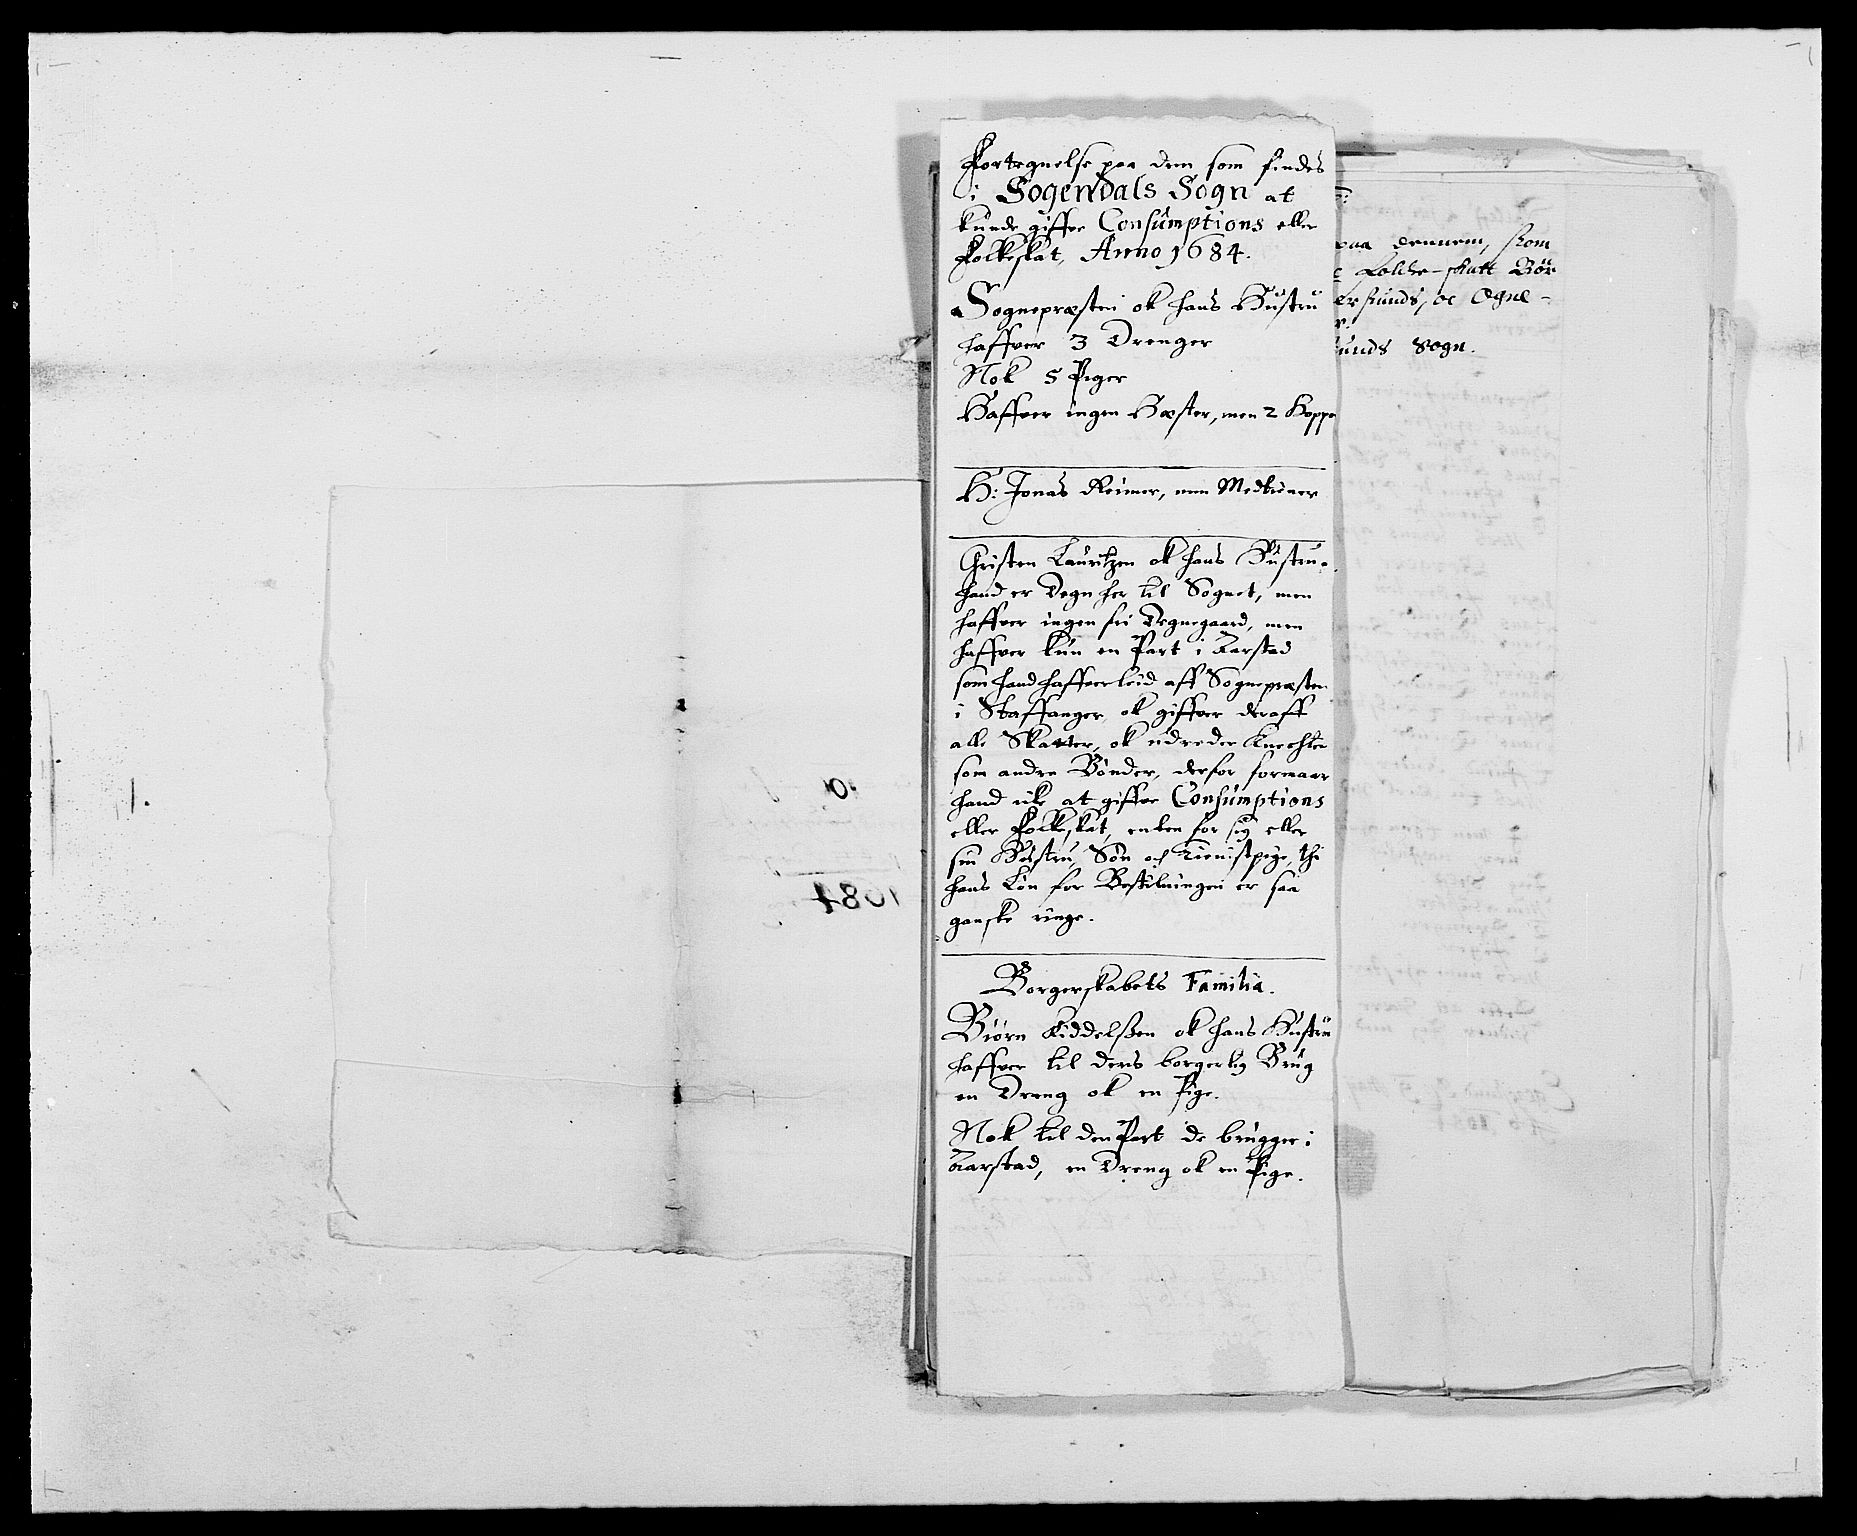 Fortegnelse paa dem som findes
i Sogendals Sogn at
kunde giffve Consumptions eller
Folkeskat, Anno 1684.
Sognepræsten ok hans Hustru
haffver 3 Drenger
Nok 5 Piger
Haffver ingen Hæster, men 2 Hopper
H: Jonas Reimer, min Medtiener
Christen Lauritzen ok hans Hustru,
hand er Degn her til Sognet, men
haffver ingen fri Degnegaard, men
haffver kun en Part i Aarstad
som hand haffver leid aff Sognepræsten
i Staffanger, ok giffver deraff
alle Skatter, ok udreder Knechter
som andre Bönder, derfor formaar
hand icke at giffve Consumptions
eller Folkeskat, enten for sig eller
sin Hustru, Sön och Tienistpige, thi
hans Lön for Bestilningen er saa
ganske ringe.
Borgerskabets Familia.
Biörn Kiddelßen ok hans Hustru
haffver til deris borgerlig Brug
en Dreng ok en Pige.
Nok til den Part de brugger i
Aarstad, en Dreng ok en Pige.
paa dennem, som
Folche-skatt Bör
ersunds, oc Ogne-
unds Sogn.
1.
1684